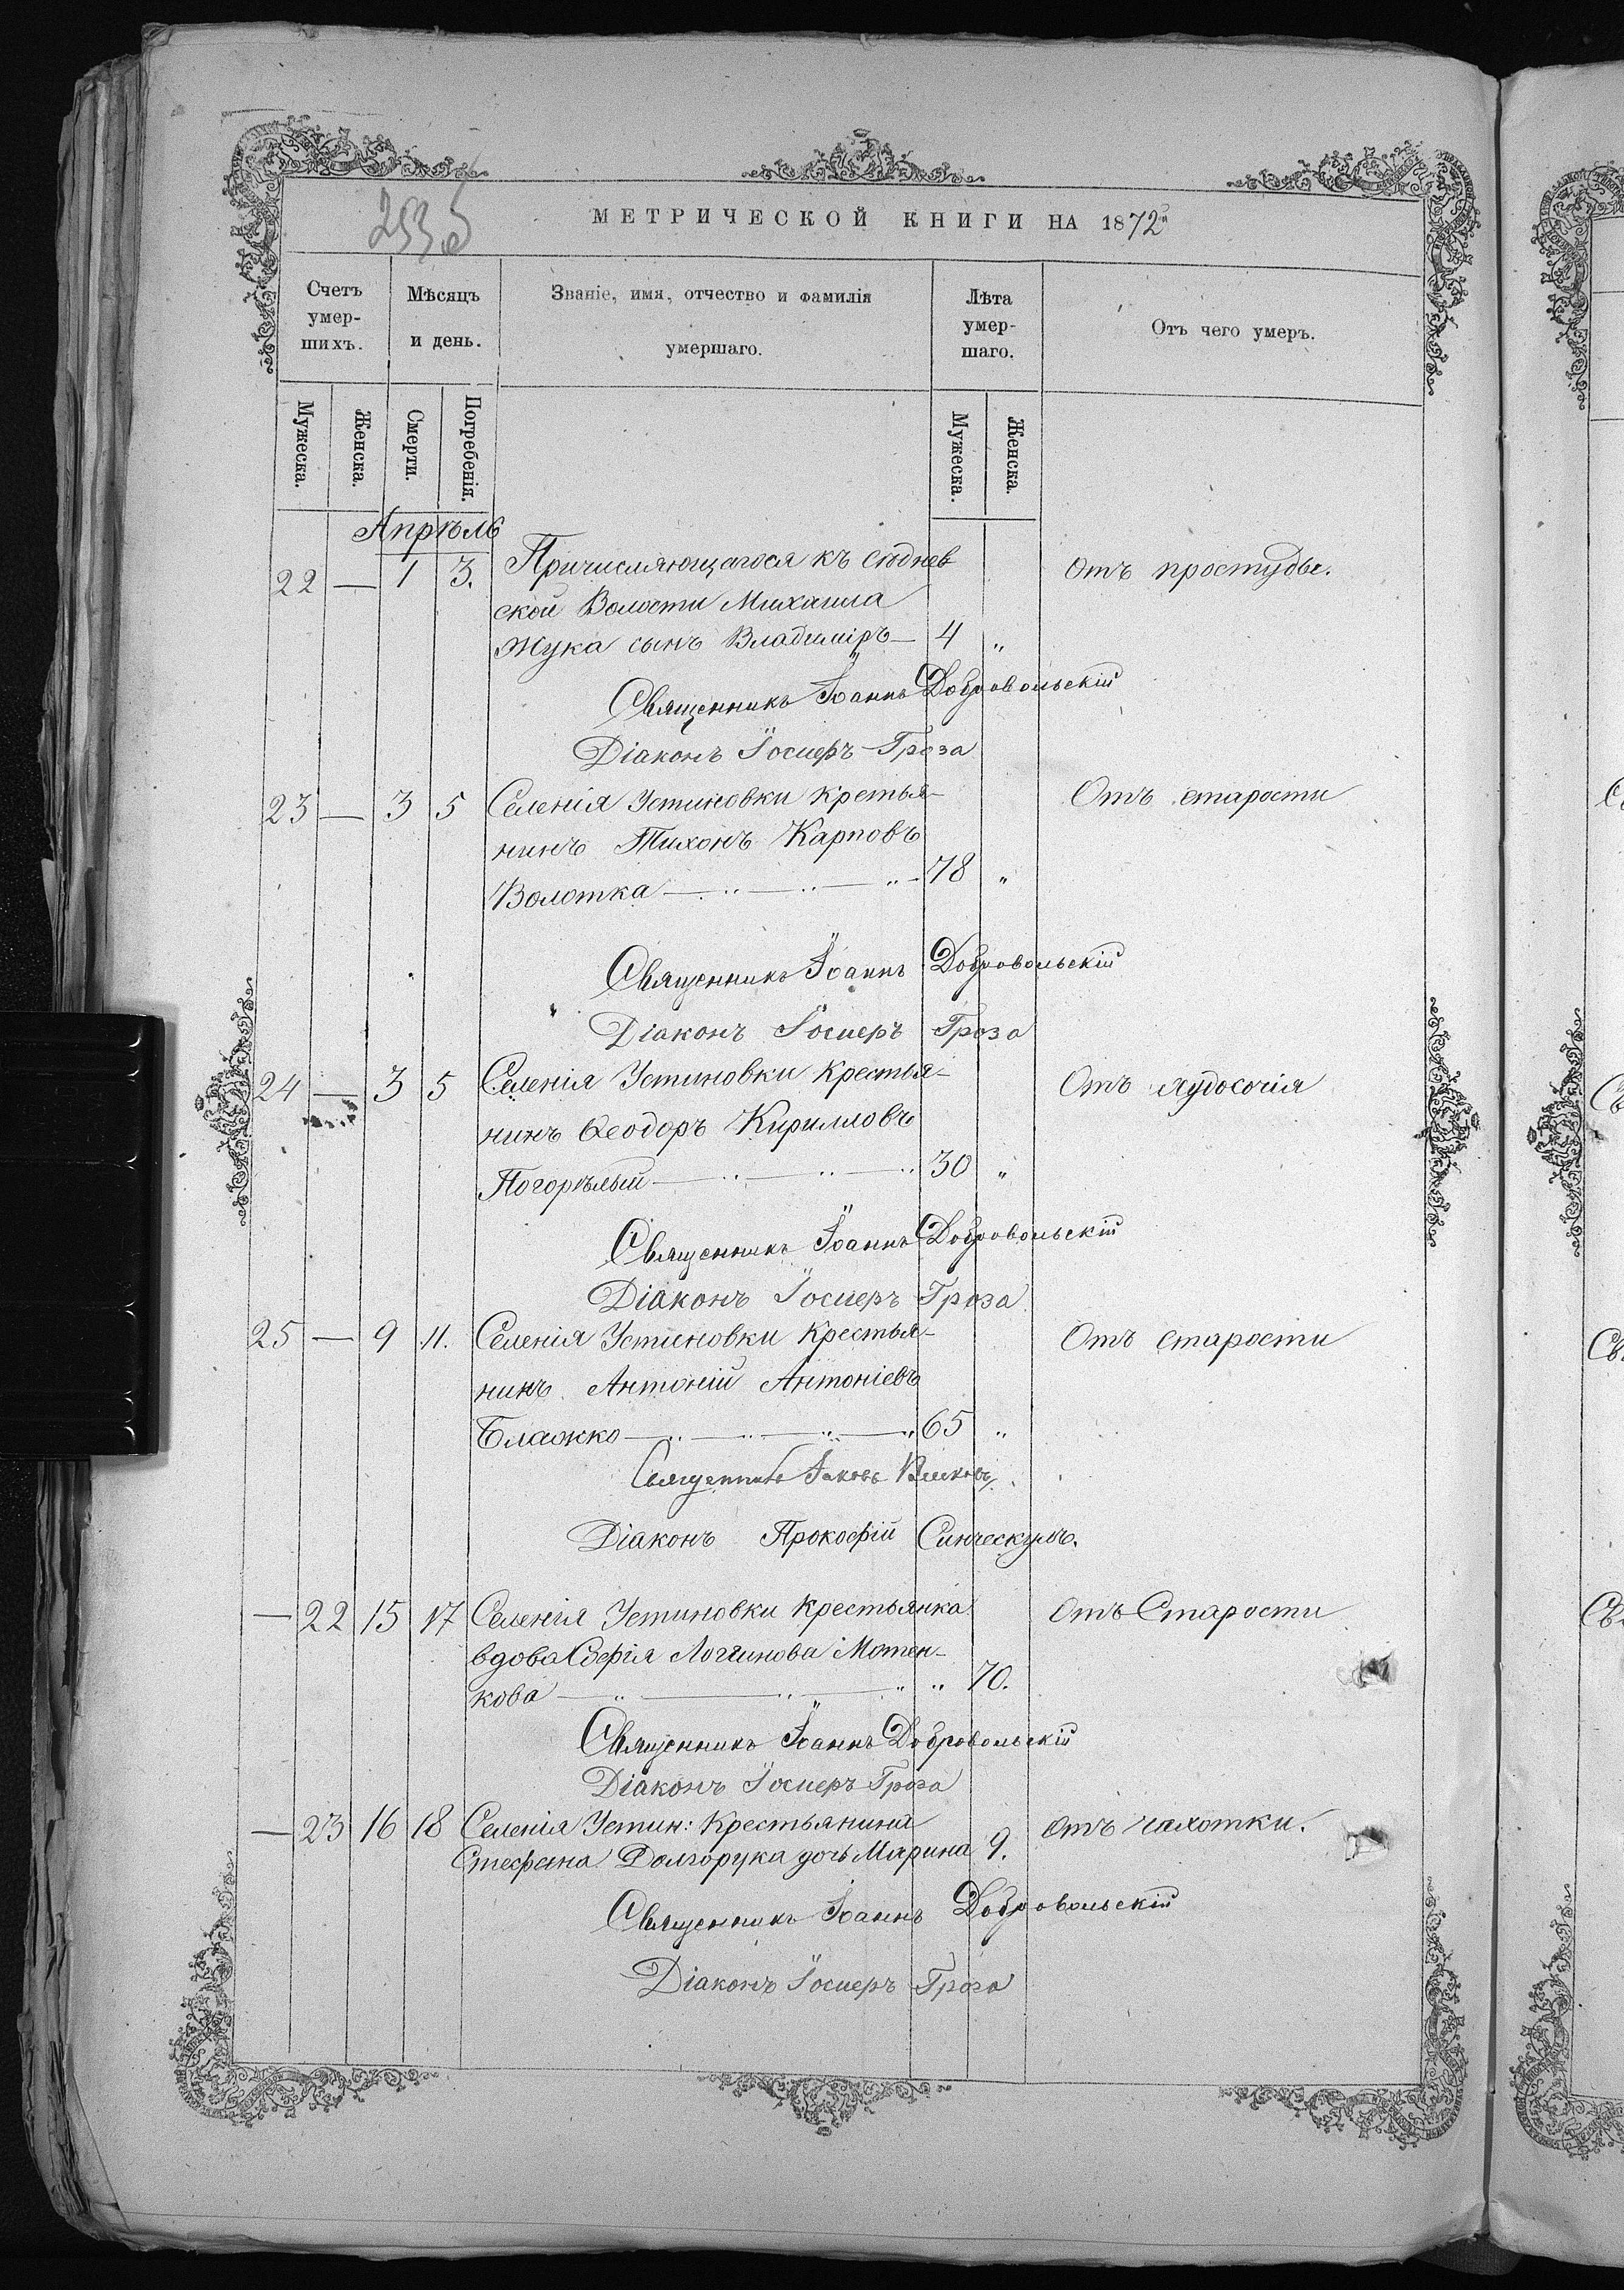 МЕТРИЧЕСКОЙ КНИГИ НА 1872
Счетъ умер-шихъ.
Мѣсяцъ и день.
Званіе, имя, отчество и фамилія умершаго.
Лѣта умер-шаго.
Отъ чего умеръ.
Мужеска. Женска. Смерти. Погребенія. Мужеска. Женска.
Апрѣль
22 — 1 3. Причисляющагося къ отъ простуды.
ской Волости Михаила
Жука сынъ Владиміръ — 4 "
Священникъ Іоаннъ Добровольскій
Діаконъ Іосиеръ Гроза
23 — 3 5 Селенія Устиновки кретья- Отъ старости
нинъ Тихонъ Карповъ
Волотка — 78 "
Священникъ Іоаннъ Добровольскій
Діаконъ Іосиеръ Гроза
24 — 3 5 Селенія Устиновки Крестья- Отъ худосочія
нинъ Ѳеодоръ Кирилловъ
Погорѣлый — 30 "
Священникъ Іоаннъ Добровольскій
Діаконъ Іосиеръ Гроза
25 — 9 11. Селенія Устиновки Крестья- Отъ старости
нинъ Антоній Антоніевъ
Блажко — 65 "
Священникъ Іаковъ
Діаконъ Прокофій
— 22 15 17 Селенія Устиновки Крестьянка Отъ Старости
вдова Софія Логгинова Мотен-
кова — " 70.
Священникъ Іоаннъ Добровольскій
Діаконъ Іосиеръ Гроза
— 23 16 18 Селенія Устин: Крестьянина отъ чахотки.
Стефана Долгорука дочь Марина 9.
Священникъ Іоаннъ Добровольскій
Діаконъ Іосиеръ Гроза